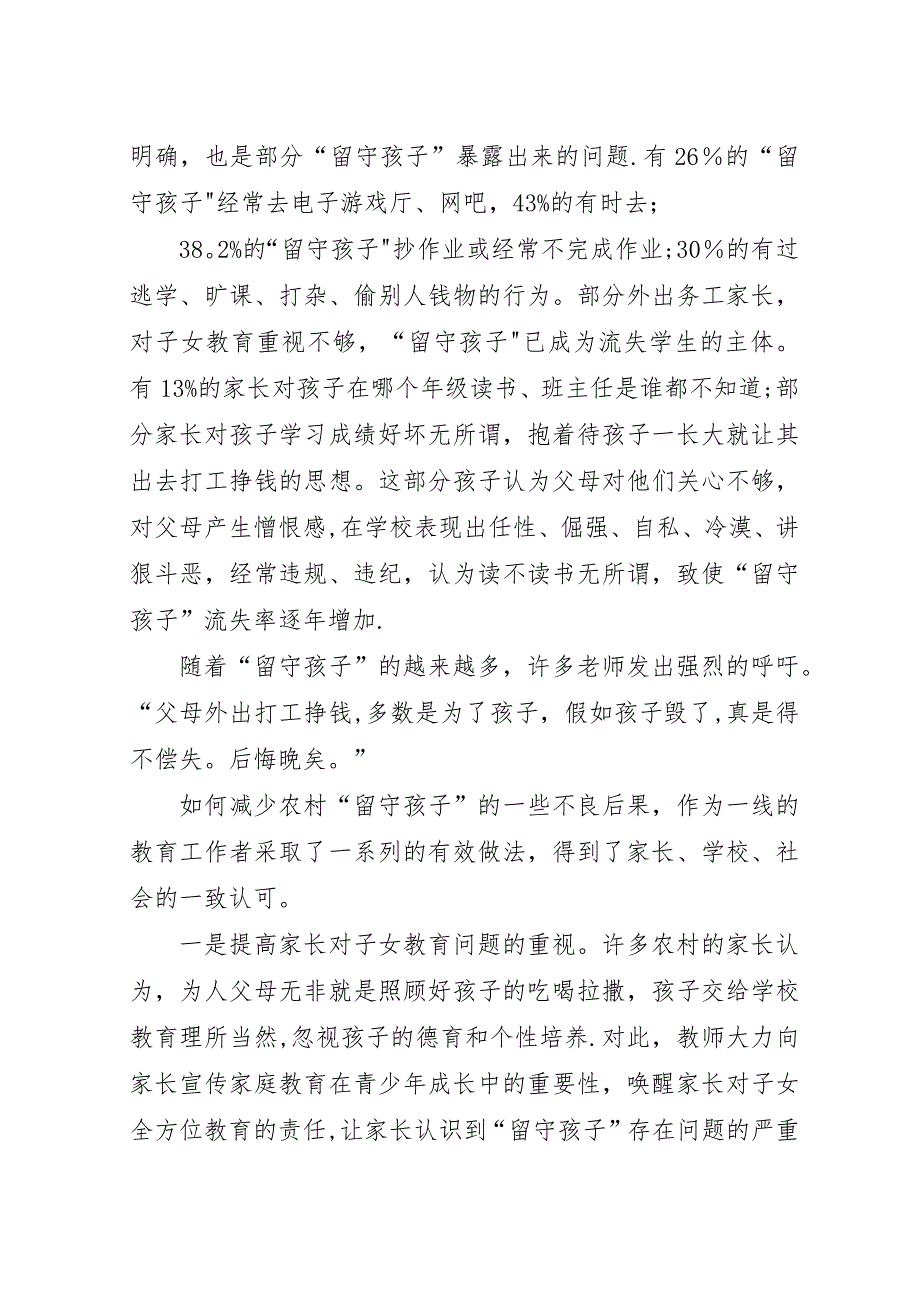 明确，也是部分“留守孩子”暴露出来的问题.有26％的“留
守孩子"经常去电子游戏厅、网吧，43%的有时去；
38。2%的“留守孩子"抄作业或经常不完成作业;30％的有过
逃学、旷课、打杂、偷别人钱物的行为。部分外出务工家长，
对子女教育重视不够，“留守孩子"已成为流失学生的主体。
有13%的家长对孩子在哪个年级读书、班主任是谁都不知道;部
分家长对孩子学习成绩好坏无所谓，抱着待孩子一长大就让其
出去打工挣钱的思想。这部分孩子认为父母对他们关心不够，
对父母产生憎恨感,在学校表现出任性、倔强、自私、冷漠、讲
狠斗恶，经常违规、违纪，认为读不读书无所谓，致使“留守
孩子”流失率逐年增加.
随着“留守孩子”的越来越多，许多老师发出强烈的呼吁。
“父母外出打工挣钱,多数是为了孩子，假如孩子毁了,真是得
不偿失。后悔晚矣。”
如何减少农村“留守孩子”的一些不良后果，作为一线的
教育工作者采取了一系列的有效做法，得到了家长、学校、社
会的一致认可。
一是提高家长对子女教育问题的重视。许多农村的家长认
为，为人父母无非就是照顾好孩子的吃喝拉撒，孩子交给学校
教育理所当然,忽视孩子的德育和个性培养.对此，教师大力向
家长宣传家庭教育在青少年成长中的重要性，唤醒家长对子女
全方位教育的责任,让家长认识到“留守孩子”存在问题的严重